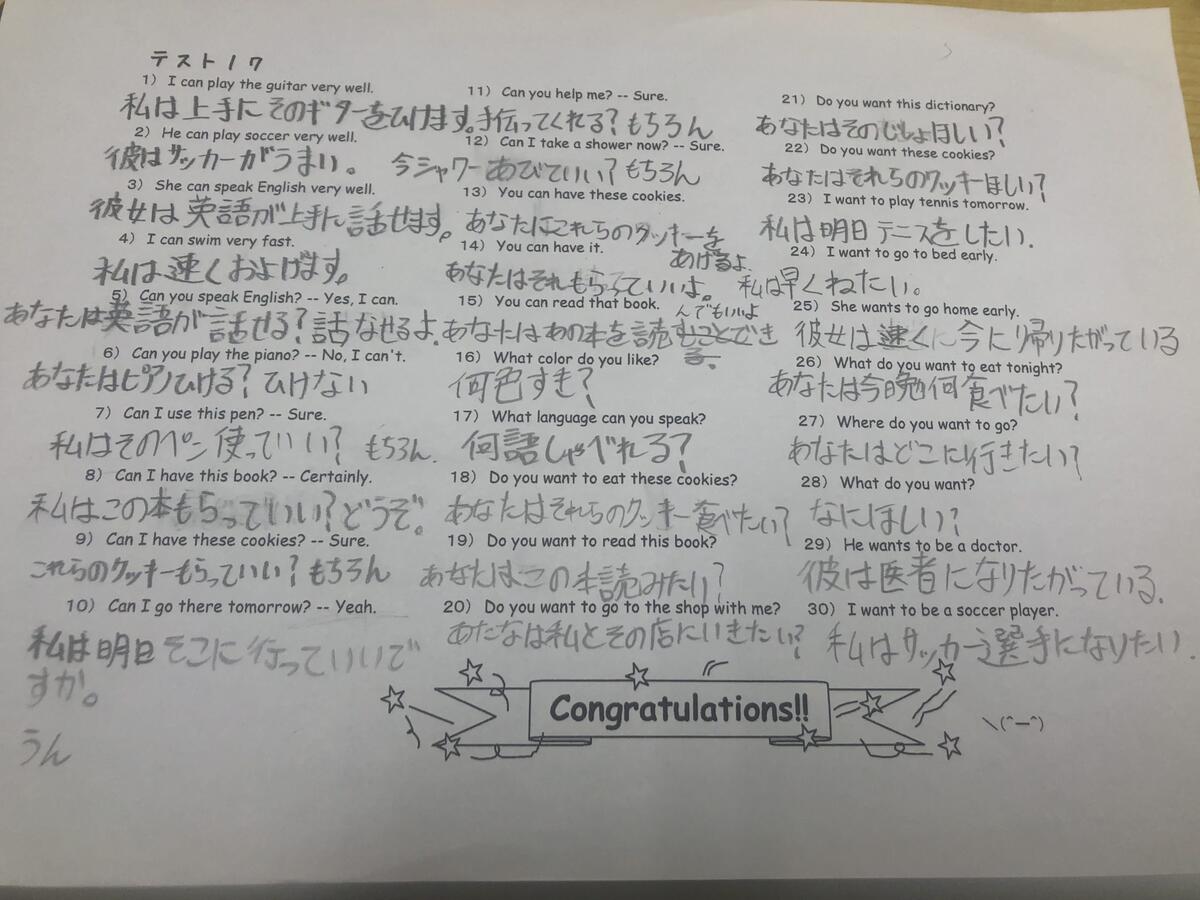 テスト17
1) I can play the guitar very well.
私は上手にそのギターをひけます。
2) He can play soccer very well.
彼はサッカーがうまい。
3) She can speak English very well.
彼女は英語が上手に話せます。
4) I can swim very fast.
私は速くおよげます。
5) Can you speak English? -- Yes, I can.
あなたは英語が話せる?話なせるよ。
6) Can you play the piano? -- No, I can't.
あなたはピアノひける?ひけない
7) Can I use this pen? -- Sure.
私はそのペン使っていい?もちろん.
8) Can I have this book? -- Certainly.
私はこの本もらっていい?どうぞ。
9) Can I have these cookies? -- Sure.
これらのクッキーもらっていい?もちろん
10) Can I go there tomorrow? -- Yeah.
私は明日そこに行っていいで
すか。
うん
11) Can you help me? -- Sure.
手伝ってくれる?もちろん
12) Can I take a shower now? -- Sure.
今シャワーあびていい?もちろん
13) You can have these cookies.
あなたにこれらのクッキーを
あげるよ.
14) You can have it.
あなたはそれもらっていいよ。
15) You can read that book.
んでもいいよ
あなたはあの本を読むことでき
る.
16) What color do you like?
何色すき?
17) What language can you speak?
何語しゃべれる?
18) Do you want to eat these cookies?
あなたはそれらのクッキー食べたい?
19) Do you want to read this book?
あなたはこの本読みたい?
20) Do you want to go to the shop with me?
あたなは私とその店にいきたい?
21) Do you want this dictionary?
あなたはそのじしょほしい?
22) Do you want these cookies?
あなたはそれらのクッキーほしい?
23) I want to play tennis tomorrow.
私は明日テニスをしたい.
24) I want to go to bed early.
私は早くねたい。
25) She wants to go home early.
彼女は速くに今に帰りたがっている
26) What do you want to eat tonight?
あなたは今日晩何食べたい?
27) Where do you want to go?
あなたはどこに行きたい?
28) What do you want?
なにほしい?
29) He wants to be a doctor.
彼は医者になりたがっている.
30) I want to be a soccer player.
私はサッカー選手になりたい.
Congratulations!!
\(^ー^)